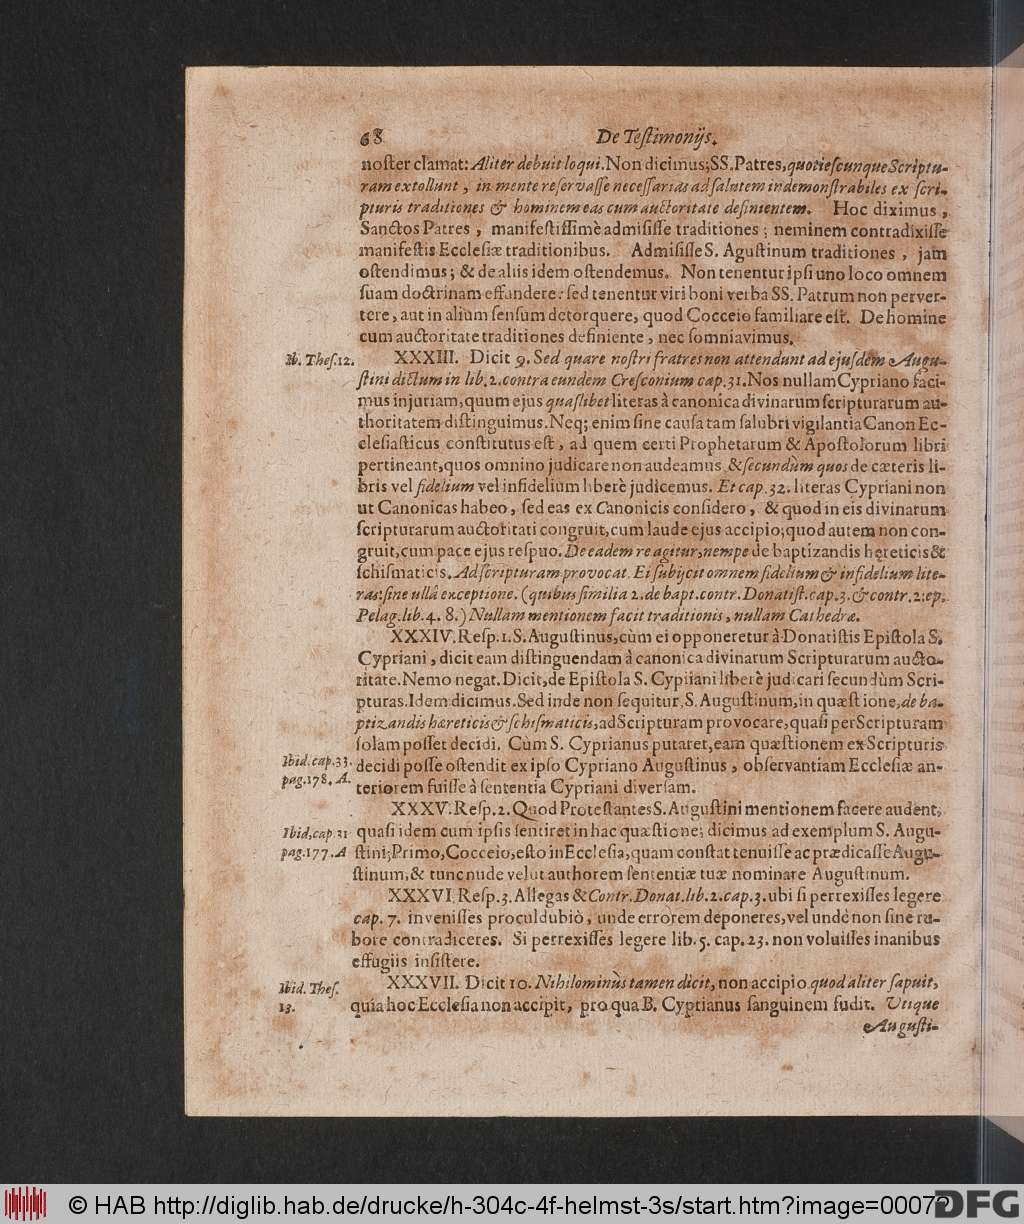 68 De Testimonijs.
noster clamat: Aliter debuit loqui. Non dicimus; SS. Patres, quotiescunque Scriptu-
ram extollunt, in mente reservasse necessarias ad salutem indemonstrabiles ex scri-
pturis traditiones & hominem eas cum auctoritate definientem. Hoc diximus,
Sanctos Patres, manifestissimè admisisse traditiones; neminem contradixisse
manifestis Ecclesiæ traditionibus. Admisisse S. Agustinum traditiones, jam
ostendimus; & de aliis idem ostendemus. Non tenentur ipsi uno loco omnem
suam doctrinam effundere: sed tenentur viri boni verba SS. Patrum non perver-
tere, aut in alium sensum detorquere, quod Cocceio familiare est. De homine
cum auctoritate traditiones definiente, nec somniavimus.
Ib. Thes. 12. XXXIII. Dicit 9. Sed quare nostri fratres non attendunt ad ejusdem Augu-
stini dictum in lib. 2. contra eundem Cresconium cap. 31. Nos nullam Cypriano faci-
mus injuriam, quum ejus quaslibet literas à canonica divinarum scripturarum au-
thoritatem distinguimus. Neq; enim sine causa tam salubri vigilantia Canon Ec-
clesiasticus constitutus est, ad quem certi Prophetarum & Apostolorum libri
pertineant, quos omnino judicare non audeamus, & secundùm quos de cæteris li-
bris vel fidelium vel infidelium liberè judicemus. Et cap. 32. literas Cypriani non
ut Canonicas habeo, sed eas ex Canonicis considero, & quod in eis divinarum
scripturarum auctoritati congruit, cum laude ejus accipio; quod autem non con-
gruit, cum pace ejus respuo. De eadem re agitur, nempe de baptizandis hereticis &
schismaticis. Ad scripturam provocat. Ei subijcit omnem fidelium & infidelium lite-
ras: sine ullâ exceptione. (quibus similia 2. de bapt. contr. Donatist. cap. 3. & contr. 2. ep.
Pelag. lib. 4. 8.) Nullam mentionem facit traditionis, nullam Cathedræ.
XXXIV. Resp. 1. S. Augustinus, cùm ei opponeretur à Donatistis Epistola S.
Cypriani, dicit eam distinguendam à canonica divinarum Scripturarum aucto-
ritate. Nemo negat. Dicit, de Epistola S. Cypriani liberè judicari secundùm Scri-
pturas. Idem dicimus. Sed inde non sequitur, S. Augustinum, in quæstione, de ba-
ptizandis hæreticis & schismaticis, ad Scripturam provocare, quasi per Scripturam
solam posset decidi. Cùm S. Cyprianus putaret, eam quæstionem ex Scripturis
Ibid. cap. 33. decidi posse ostendit ex ipso Cypriano Augustinus, observantiam Ecclesiæ an-
pag. 178. A. teriorem fuisse à sententia Cypriani diversam.
XXXV. Resp. 2. Quod Protestantes S. Augustini mentionem facere audent,
Ibid, cap. 31 quasi idem cum ipsis sentiret in hac quæstione; dicimus ad exemplum S. Augu-
pag. 177. A stini; Primo, Cocceio, esto in Ecclesia, quam constat tenuisse ac prædicasse Augu-
stinum, & tunc nude velut authorem sententiæ tuæ nominare Augustinum.
XXXVI. Resp. 3. Allegas & Contr. Donat. lib. 2. cap. 3. ubi si perrexisses legere
cap. 7. invenisses proculdubiò, unde errorem deponeres, vel unde non sine ru-
bore contradiceres. Si perrexisses legere lib. 5. cap. 23. non voluisses inanibus
effugiis insistere.
Ibid. Thes. XXXVII. Dicit 10. Nihilominùs tamen dicit, non accipio quod aliter sapuit,
13. quia hoc Ecclesia non accipit, pro qua B. Cyprianus sanguinem fudit. Utique
Augusti-
© HAB http://diglib.hab.de/drucke/h-304c-4f-helmst-3s/start.htm?image=00072
DFG